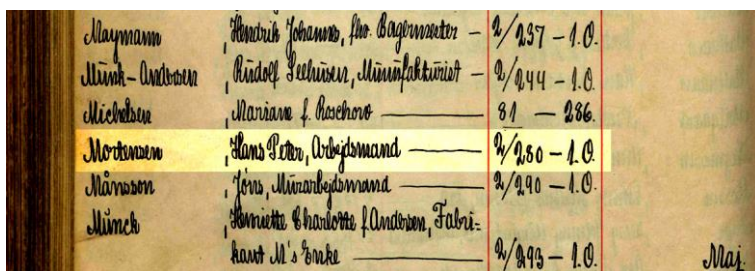 Maymann, Hendrik Johannes, fhv. Bagermester — 2/237 — 1.O.
Munk-Andersen, Rudolf Seehusen, Manufakturist — 2/244 — 1.O.
Michelsen, Mariane f. Roschow — 81 — 286.
Mortensen, Hans Peter, Arbejdsmand — 2/280 — 1.O.
Månsson, Jöns, Murarbejdsmand — 2/290 — 1.O.
Münck, Henriette Charlotte f. Andersen, Fabri=
kant M's Enke — 2/293 — 1.O.
Maj.